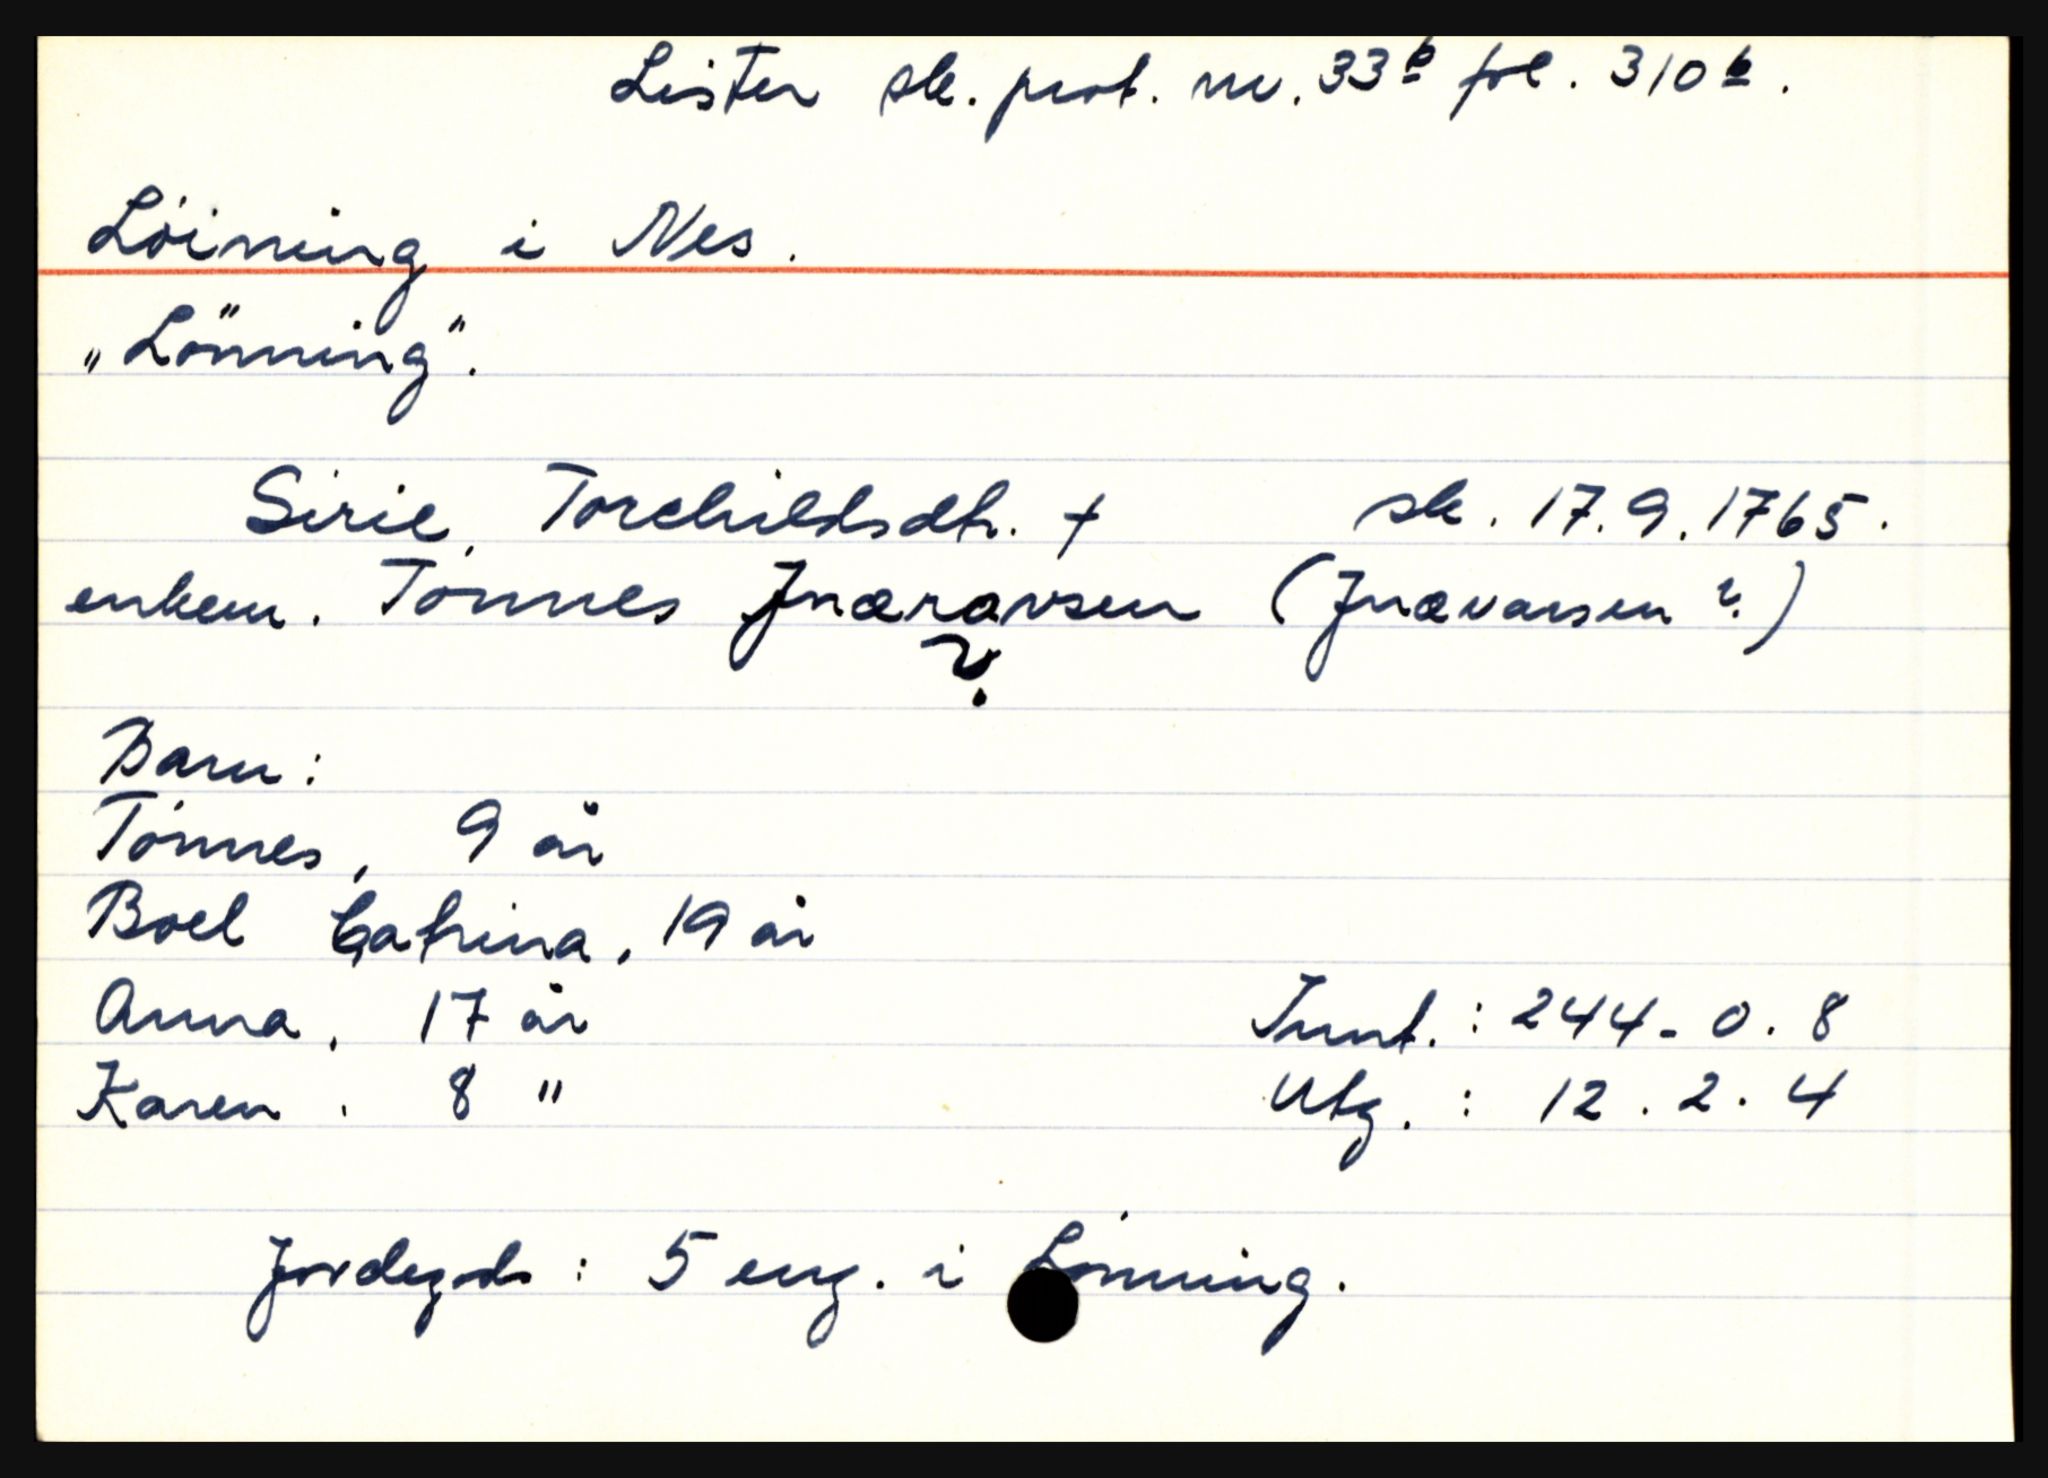 Lister sk. prot. nr. 33b fol. 310b.
Löining i Nes.
„Lönning".
Sirie Torchildsdtr. † sk. 17.9.1765.
enkem. Tönnes Jnæravsen (Jnævarsen ?)
?
Barn:
Tönnes, 9 år
Boel Catrina, 19 år
Anna, 17 år Innt. : 244 - 0 . 8
Karen . 8 " Utg. : 12 . 2 . 4
Jordegods : 5 eng. i Lönning.